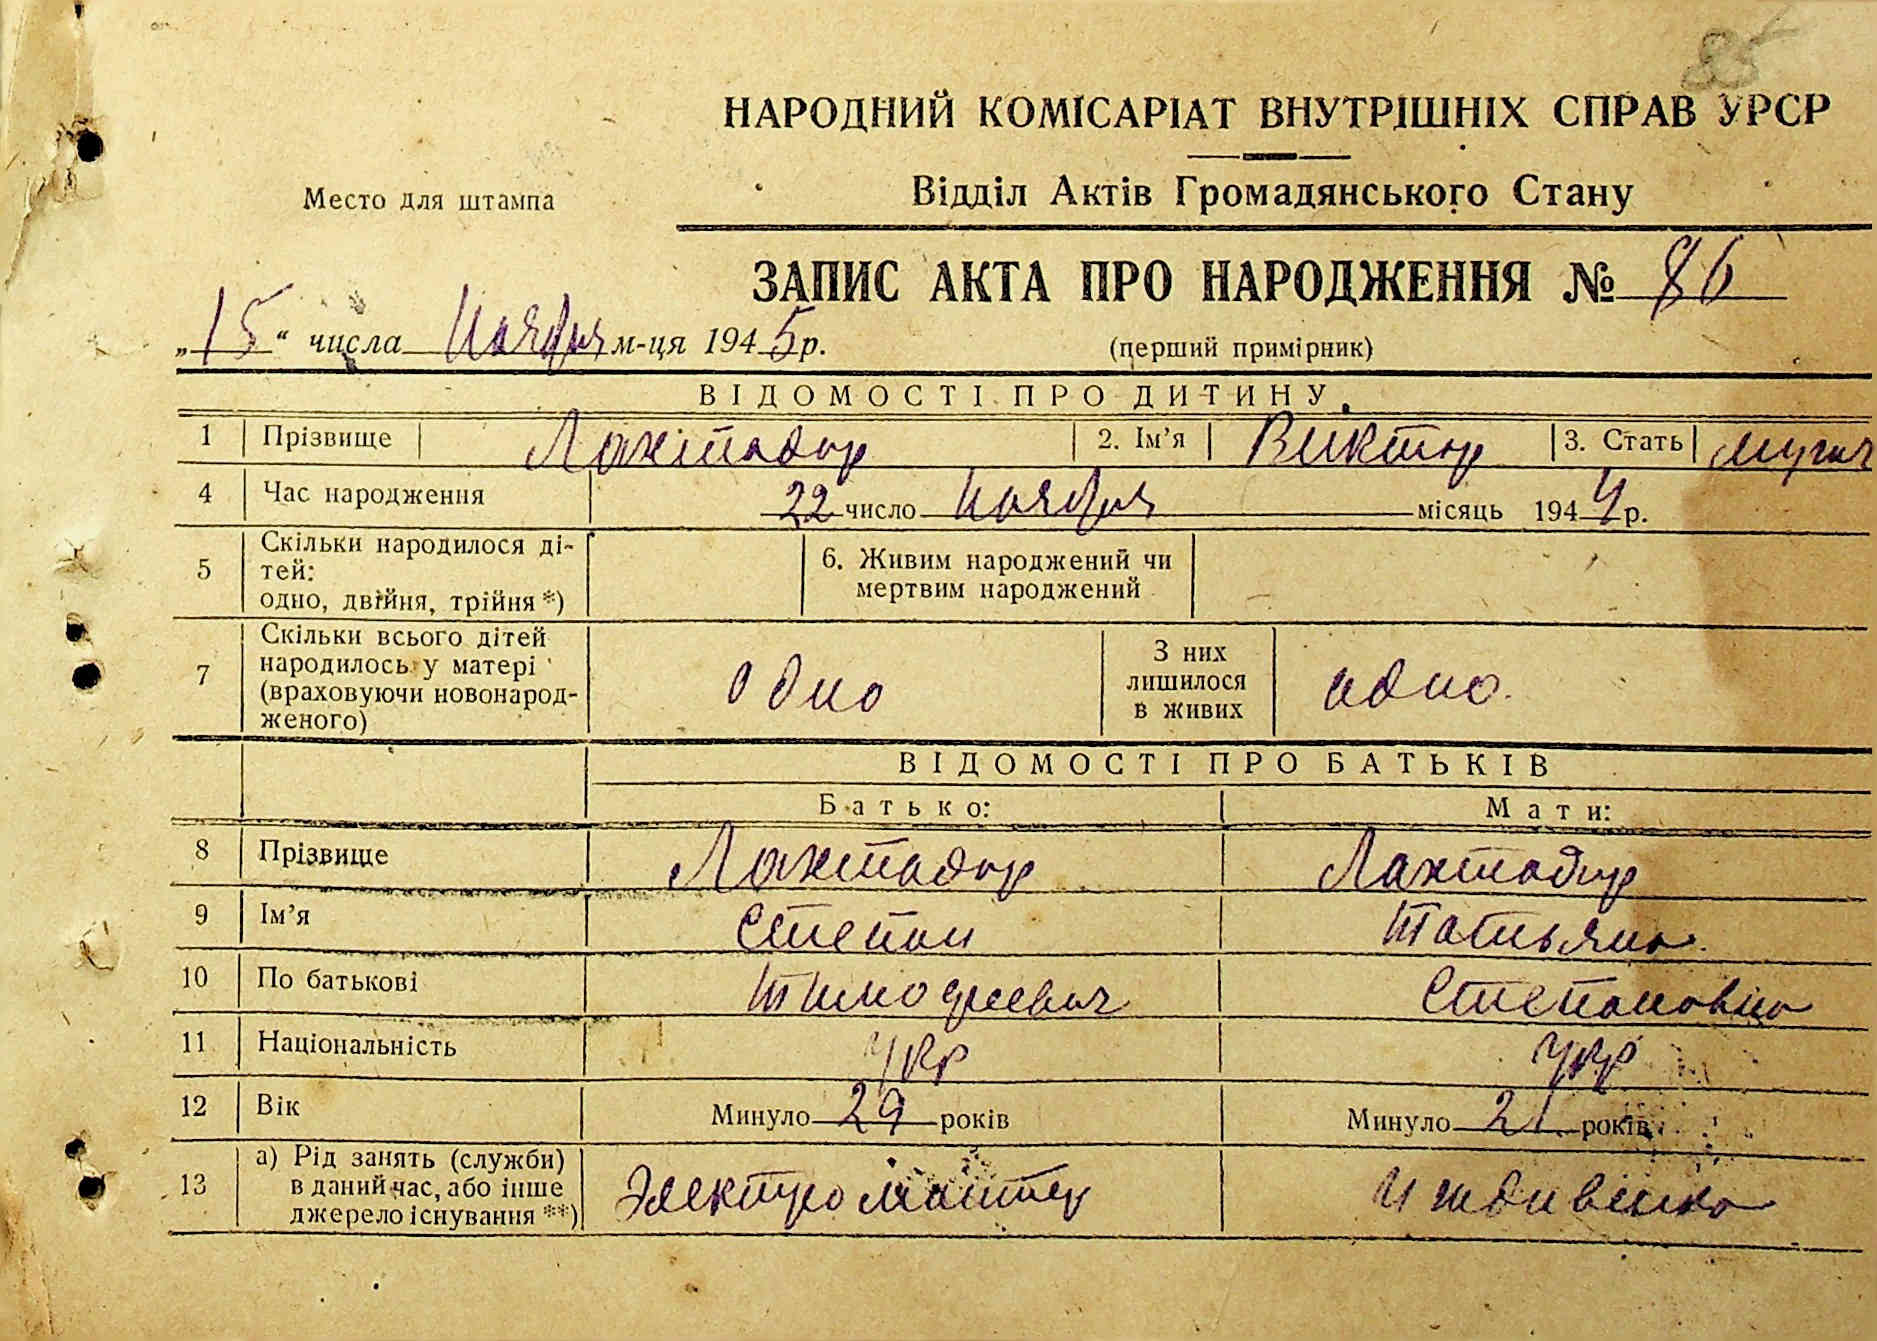 85
НАРОДНИЙ КОМІСАРІАТ ВНУТРІШНІХ СПРАВ УРСР
Место для штампа
Відділ Актів Громадянського Стану
ЗАПИС АКТА ПРО НАРОДЖЕННЯ № 86
„15“ числа Ноября м-ця 1945 р.
(перший примірник)
ВІДОМОСТІ ПРО ДИТИНУ
1 Прізвище Лахтадыр 2. Ім’я Виктор 3. Стать
4 Час народження 22 число Ноября місяць 1944 р.
5 Скільки народилося ді-
тей:
одно, двійня, трійня*)
6. Живим народжений чи
мертвим народжений
7 Скільки всього дітей
народилось у матері
(враховуючи новонарод-
женого)
одно
З них
лишилося
в живих
одно.
ВІДОМОСТІ ПРО БАТЬКІВ
Батько: Мати:
8 Прізвище Лахтадыр Лахтадыр
9 Ім’я Степан Татьяна
10 По батькові Тимофеевич Степановна
11 Національність Укр Укр
12 Вік Минуло 29 років Минуло 21 років
13 а) Рід занять (служби)
в даний час, або інше
джерело існування **)
Электромантер Иждивенка